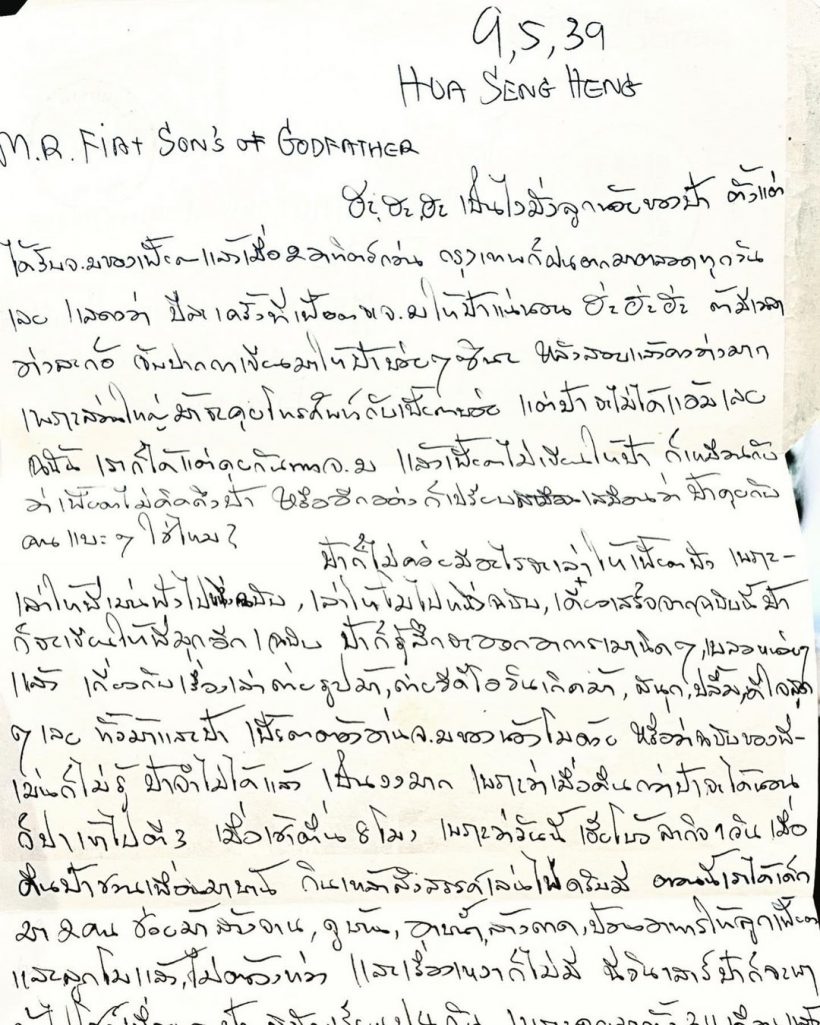 9,5,39
HUA SENG HENG
M.R. FIAT SON'S OF GODFATHER
ฮะ,ฮะ,ฮะ เป็นไงมั่งลูกน้อยของป้า ตั้งแต่
ได้รับจ.ม ของเฟี้ยตแล้วเมื่อ 2 อาทิตย์ก่อน กรุงเทพก็ฝนตกมาตลอดทุกวัน
เลย แสดงว่า ปีละครั้งที่เฟี้ยต จ.ม ให้ป้าแน่นอน ฮ่ะ ฮ่ะ ฮ่ะ ถ้ามีเวลา
ว่างละก้อ จับปากกาเขียนมาให้ป้าบ่อยๆซินะ หลังสอบแล้วคงว่างมาก
เพราะส่วนใหญ่ม้าจะคุยโทรศัพท์กับเฟี้ยตบ่อย แต่ป้าจะไม่ได้แอ้มเลย
ฉะนั้น เราก็ได้แต่คุยกันทางจ.ม แล้วเฟี้ยตไม่เขียนให้ป้า ก็เหมือนกับ
ว่าเฟี้ยตไม่คิดถึงป้า หรืออีกอย่างก็เปรียบเสมือนว่า ป้าคุยกับ
คนแบะๆ ใช่ไหม?
ป้าก็ไม่ค่อยมีอะไรจะเล่าให้เฟี้ยตฟัง เพราะ-
เล่าให้พี่เม่นฟังไปหนึ่งฉบับ, เล่าให้โมไปหนึ่งฉบับ, เดี๋ยวเสร็จจากฉบับนี้ ป้า
ก็จะเขียนให้พี่มุกอีก 1 ฉบับ ป้าก็รู้สึกจะออกอาการเมานิดๆ, เบลอหน่อยๆ
แล้ว เกี่ยวกับเรื่องเล่าถ่ายรูปม้า, ถ่ายวีดีโอวันเกิดม้า, สนุก, ปลื้ม, ดีใจสุด
ๆ เลย ทั้งม้าและป้า เฟี้ยตต้องอ่านจ.ม ของน้องโมด้วย หรือว่าฉบับของพี่-
เม่นก็ไม่รู้ ป้าจำไม่ได้แล้ว เป็นงงมาก เพราะว่าเมื่อคืนกว่าป้าจะได้นอน
ก็ปาเข้าไปตี 3 เมื่อเช้าตื่น 8 โมง เพราะว่าวันนี้ เฮียโบ้ ลากิจ 1 วัน เมื่อ
คืนป้าชวนเพื่อนมาบ้าน กินเหล้าสังสรรค์เล่นไพ่ดรัมมี่ ตอนนี้เราได้เด็ก
มา 2 คน ช่วยม้าล้างจาน, ถูบ้าน, อาบน้ำ, ล้างถาด, ป้อนอาหารให้ลูกเฟี้ยต
และลูกโมแล้ว, ไม่ต้องห่วง และเรื่องเหงาก็ไม่มี